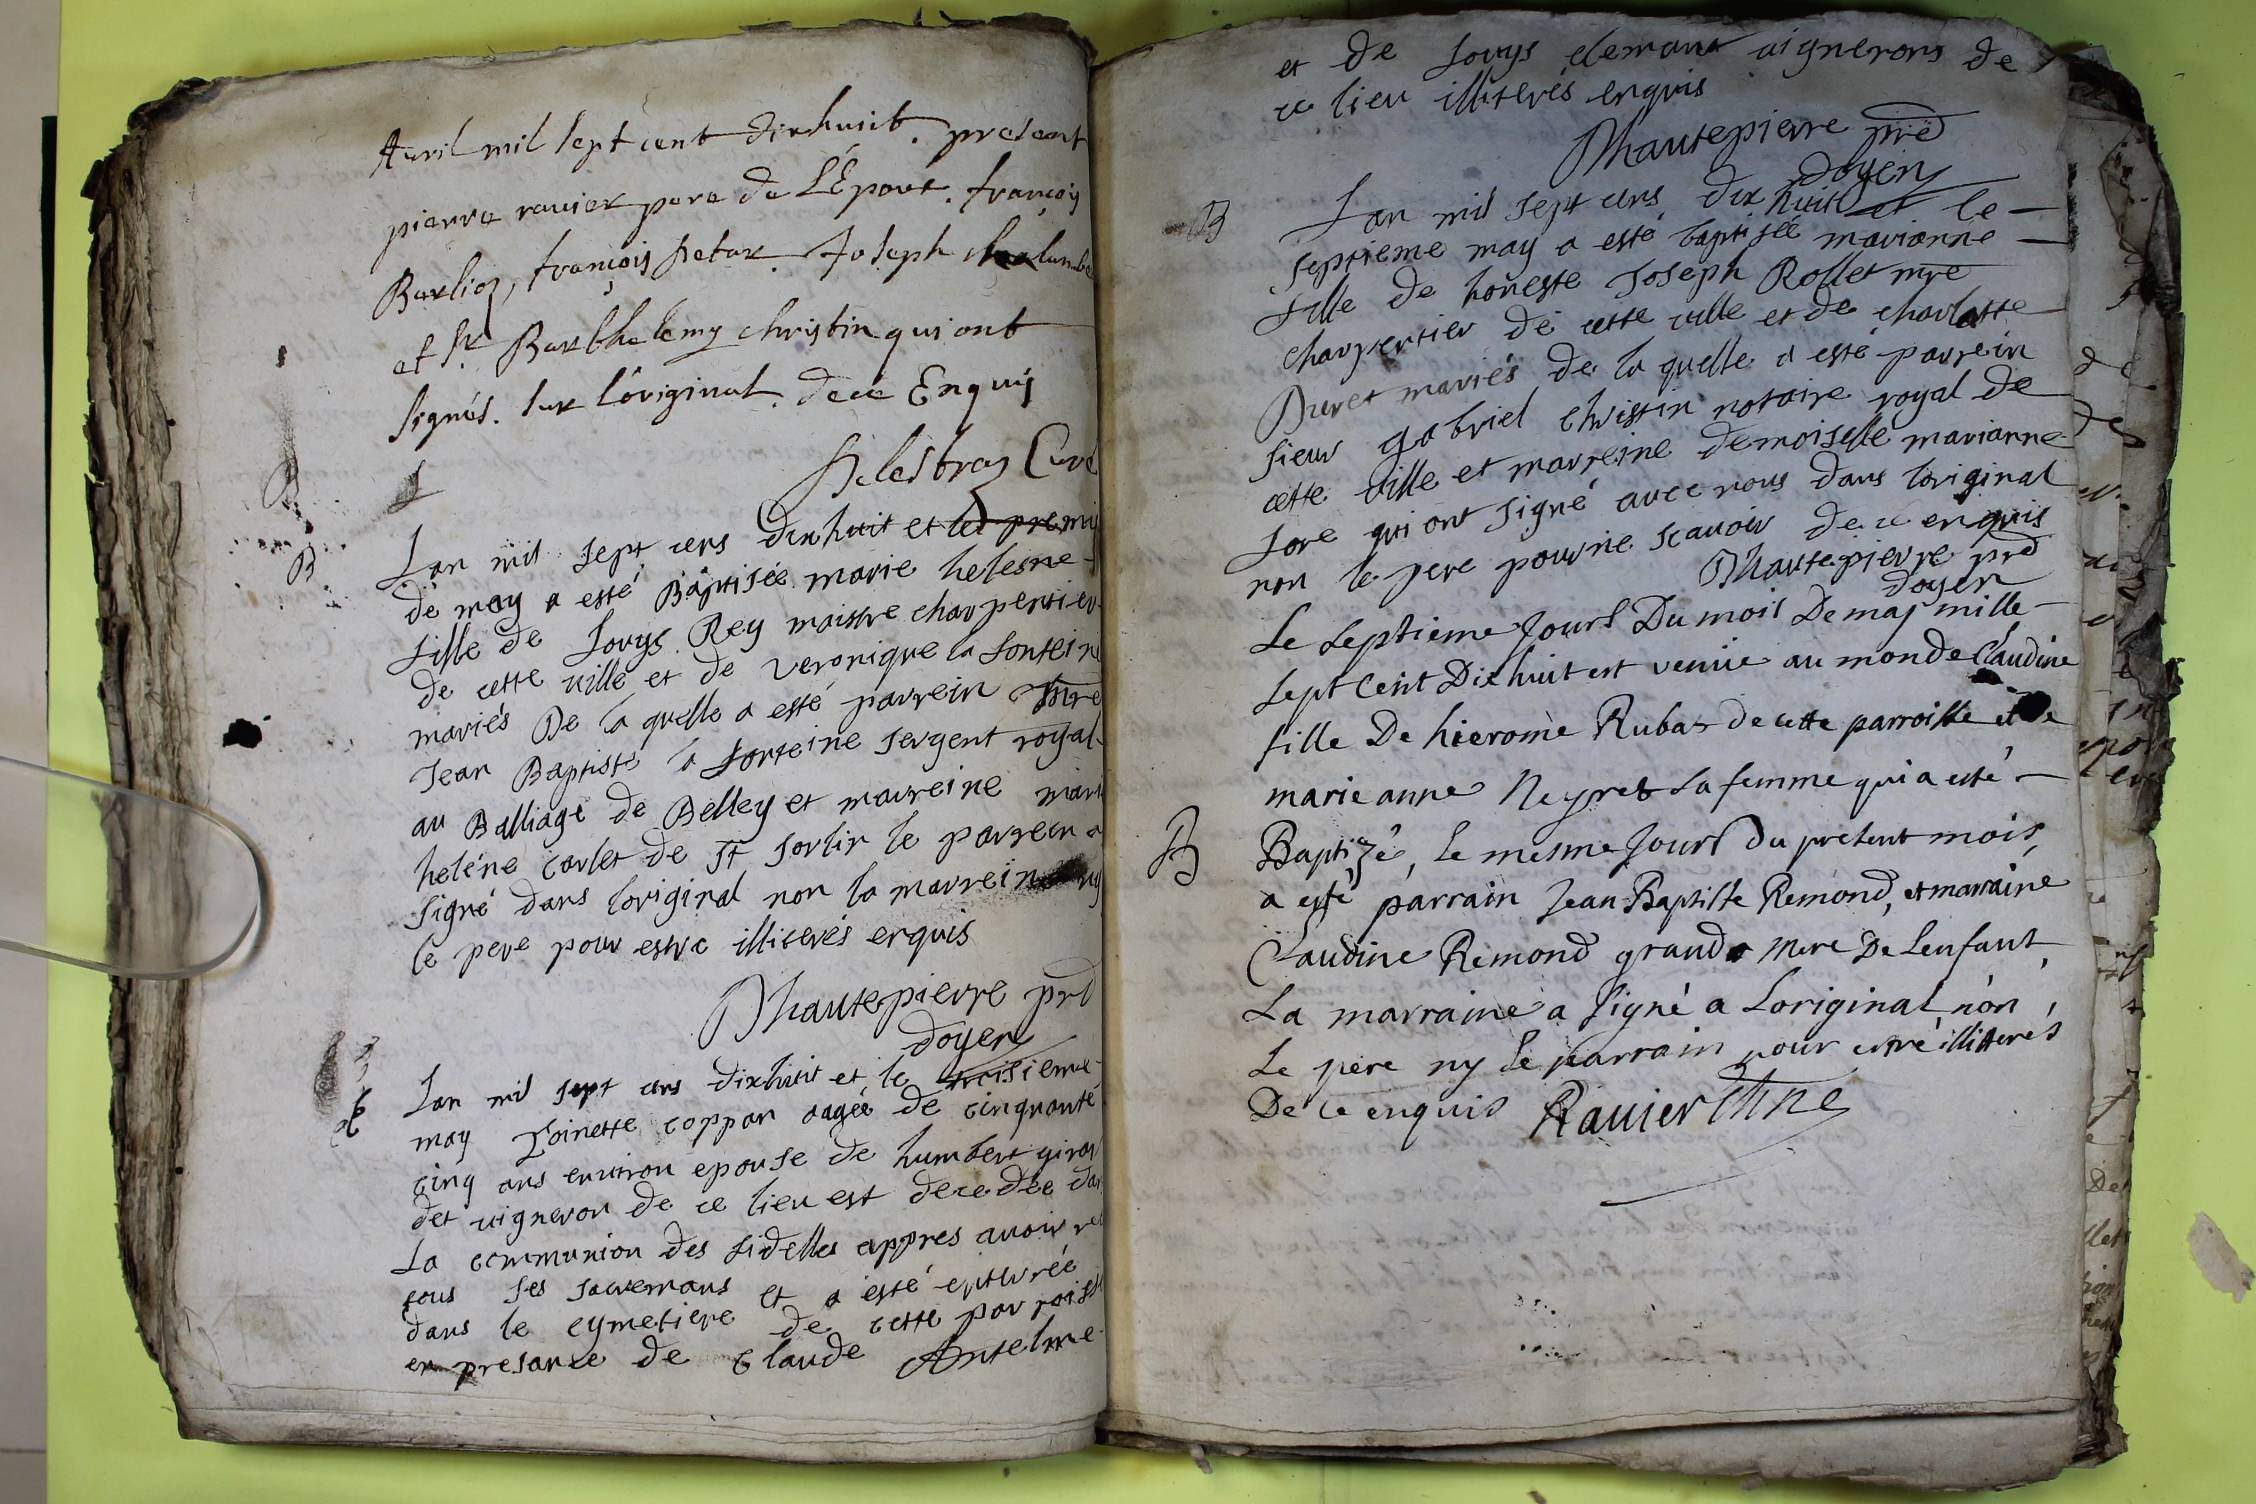 Avril mil sept cent dixhuit. present
pierre ravier pere de L'Epoux. françois
Barlioz, françois Joseph
et Sr. Barthelemy christin qui ont
signés. sur L'original. dece Enquis
Delestraz Curé
B
Lan mil sept cens dixhuit et le premi
de may a esté Baptisée marie helesne
fille de Louys Rey maistre charpentier
de cette ville et de veronique la fonteine
mariés De la quelle a esté parrein
Jean Baptiste la fonteine sergent royal
au Balliage de Belley et marreine mari
heléne carlet de St sorlin le parrein a
signé dans loriginal non la marreine ny
le pere pour estre illiterés enquis
Dhautepierre prê
doyen
Lan mil sept cens dixhuit et le troisieme
may Toinette coppon aagée de cinquante
cinq ans environ epouse de humbert giror
det vigneron de ce lieu est decedée dan
La communion des fidelles appres avoir re
tous ses sacremans et a esté
dans le cymetiere de cette parroiss
en presance de claude Antelme
et de Louys clemant vignerons de
ce lieu illiterés enquis
Dhautepierre prê
doyen
B
Lan mil sept cens dix huit et le
septieme may a esté baptisée marianne
fille de honeste Joseph Rollet mre
charpentier de cette ville et de charlotte
Duret mariés de la quelle a esté parrein
sieur gabriel christin notaire royal de
cette ville et marreine demoiselle marianne
fore qui ont signé avec nous dans loriginal
non le pere pour ne scavoir de ce enquis
Dhautepierre prê
doyen
Le septieme Jours Du mois De may mille
sept Cent Dixhuit est venüe au monde Claudine
fille De hierome Rubat de cette parroisse et de
marie anne Neyret sa femme qui a esté
B
Baptizé, Le mesme Jours du present mois,
a esté parrain Jean Baptiste Remond, et marraine
Claudine Remond grande Mere De Lenfant,
La marraine a signé a Loriginal non
Le pere ny le parrain pour estre illitterés
De ce enquis Ravier